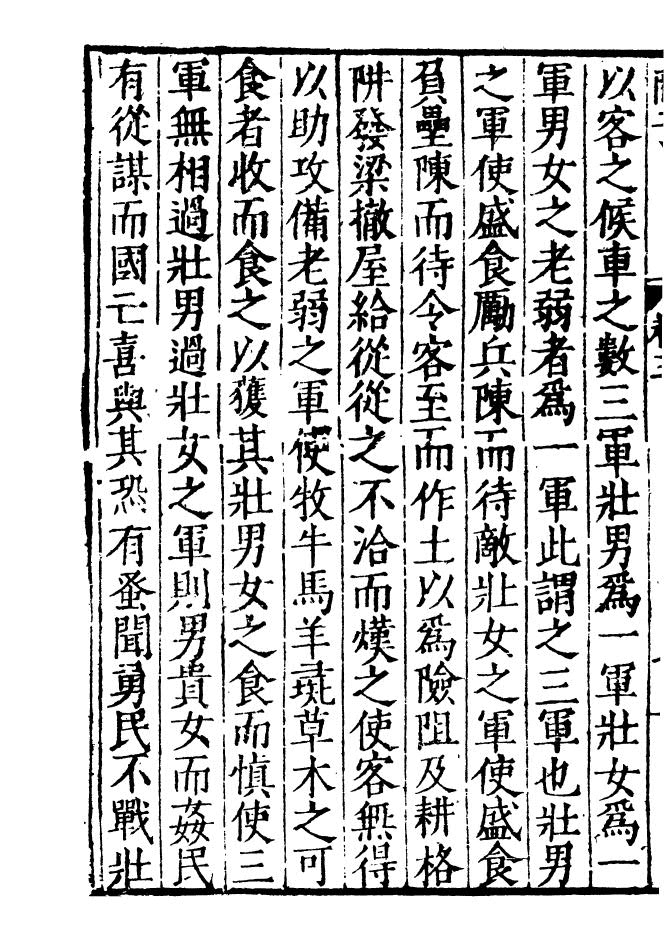 以客之候車之數三軍壯男爲一軍壯女爲一
軍男女之老弱者爲一軍此謂之三軍也壯男
之軍使盛食勵兵陳而待敵壯女之軍使盛食
負壘陳而待令客至而作土以爲險阻及耕格
阱發梁撤屋給從從之不洽而熯之使客無得
以助攻備老弱之軍使牧牛馬羊彘草木之可
食者收而食之以獲其壯男女之食而慎使三
軍無相過壯男過壯女之軍則男貴女而姦民
有從謀而國亡喜與其恐有蚤聞勇民不戰壯